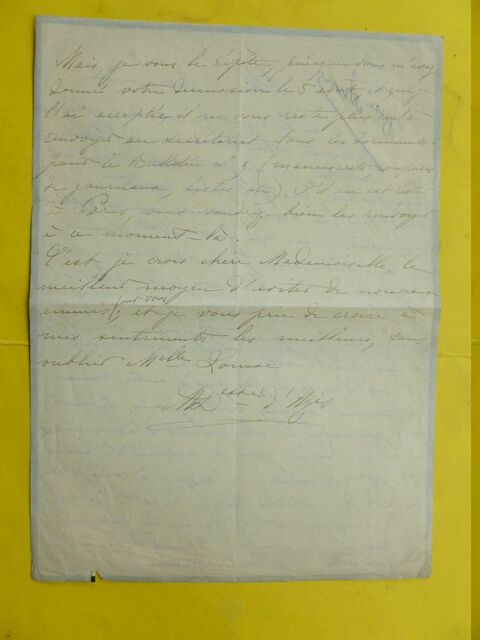 Mais, je vous le répète, puisque vous m'avez
donné votre démission le 5 août et que je
l'ai acceptée, il ne vous reste plus qu'à
renvoyer au secrétariat tous les documents
pour le Bulletin n° 9 (manuscrits, coupures
de journaux, listes etc). S'il en est resté
à Paris, vous voudrez bien les renvoyer
à ce moment-là.
C'est je crois chère Mademoiselle, le
meilleur moyen d'éviter de nouveaux
ennuis, pour vous, et je vous prie de croire à
mes sentiments les meilleurs, sans
oublier Mlle Louise
Dsse d'Uzès